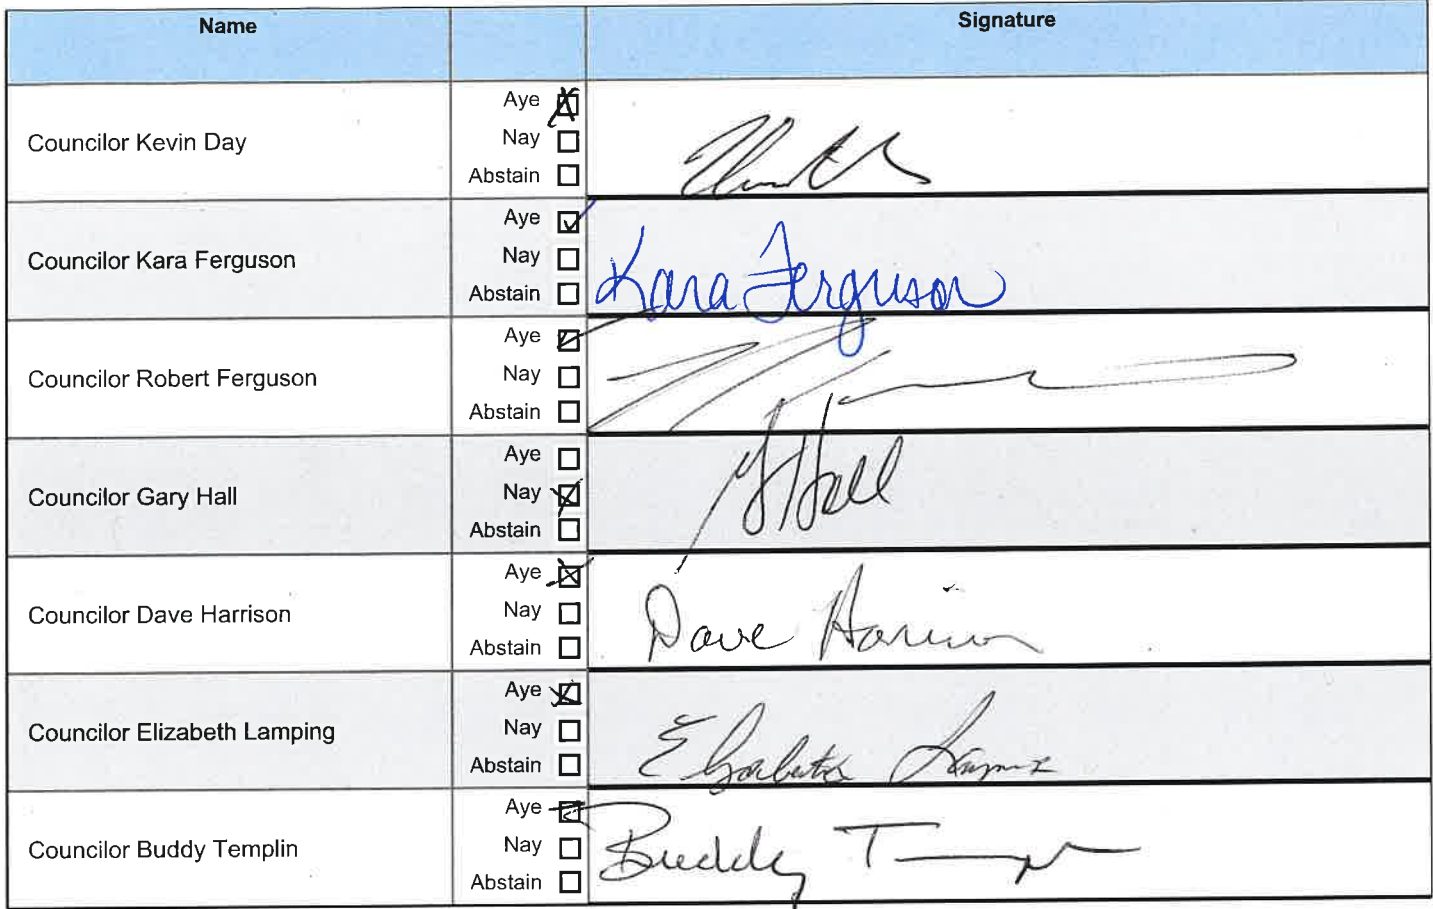 Name Signature
Aye
Councilor Kevin Day
Nay
Abstain
Aye
Councilor Kara Ferguson
Nay
Abstain
Kara Ferguson
Aye
Councilor Robert Ferguson
Nay
Abstain
Aye
Councilor Gary Hall
Nay
Abstain
G Hall
Aye
Councilor Dave Harrison
Nay
Abstain
Dave Harrison
Aye
Councilor Elizabeth Lamping
Nay
Abstain
Elizabeth Lamping
Aye
Councilor Buddy Templin
Nay
Abstain
Buddy